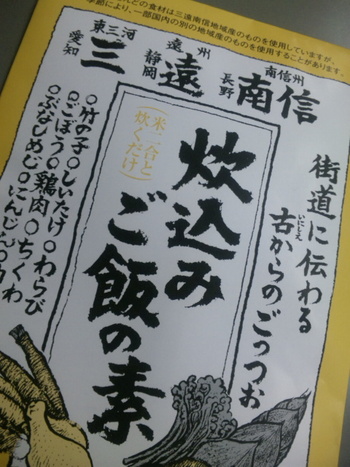 などの食材は三遠南信地域産のものを使用していますが、
季節により、一部国内の別の地域産のものを使用することがあります。
東三河
愛知
三
遠州
静岡
遠
南信州
長野
南信
街道に伝わる
古からのごっつお
いにしえ
炊込み
ご飯の素
(米二合と
炊くだけ)
○竹の子○しいたけ○わらび
○ごぼう○鶏肉○ちくわ
○ぶなしめじ○にんじん○